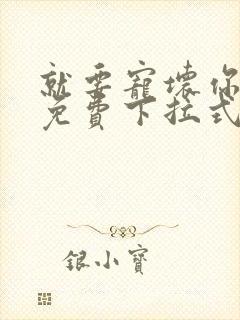 就要寵壞你
免費下拉式
銀小寶